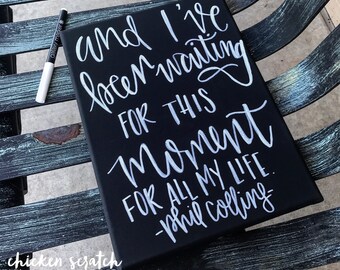 and I've
been waiting
FOR THIS
moment
FOR ALL MY LIFE.
-phil collins-
chicken scratch